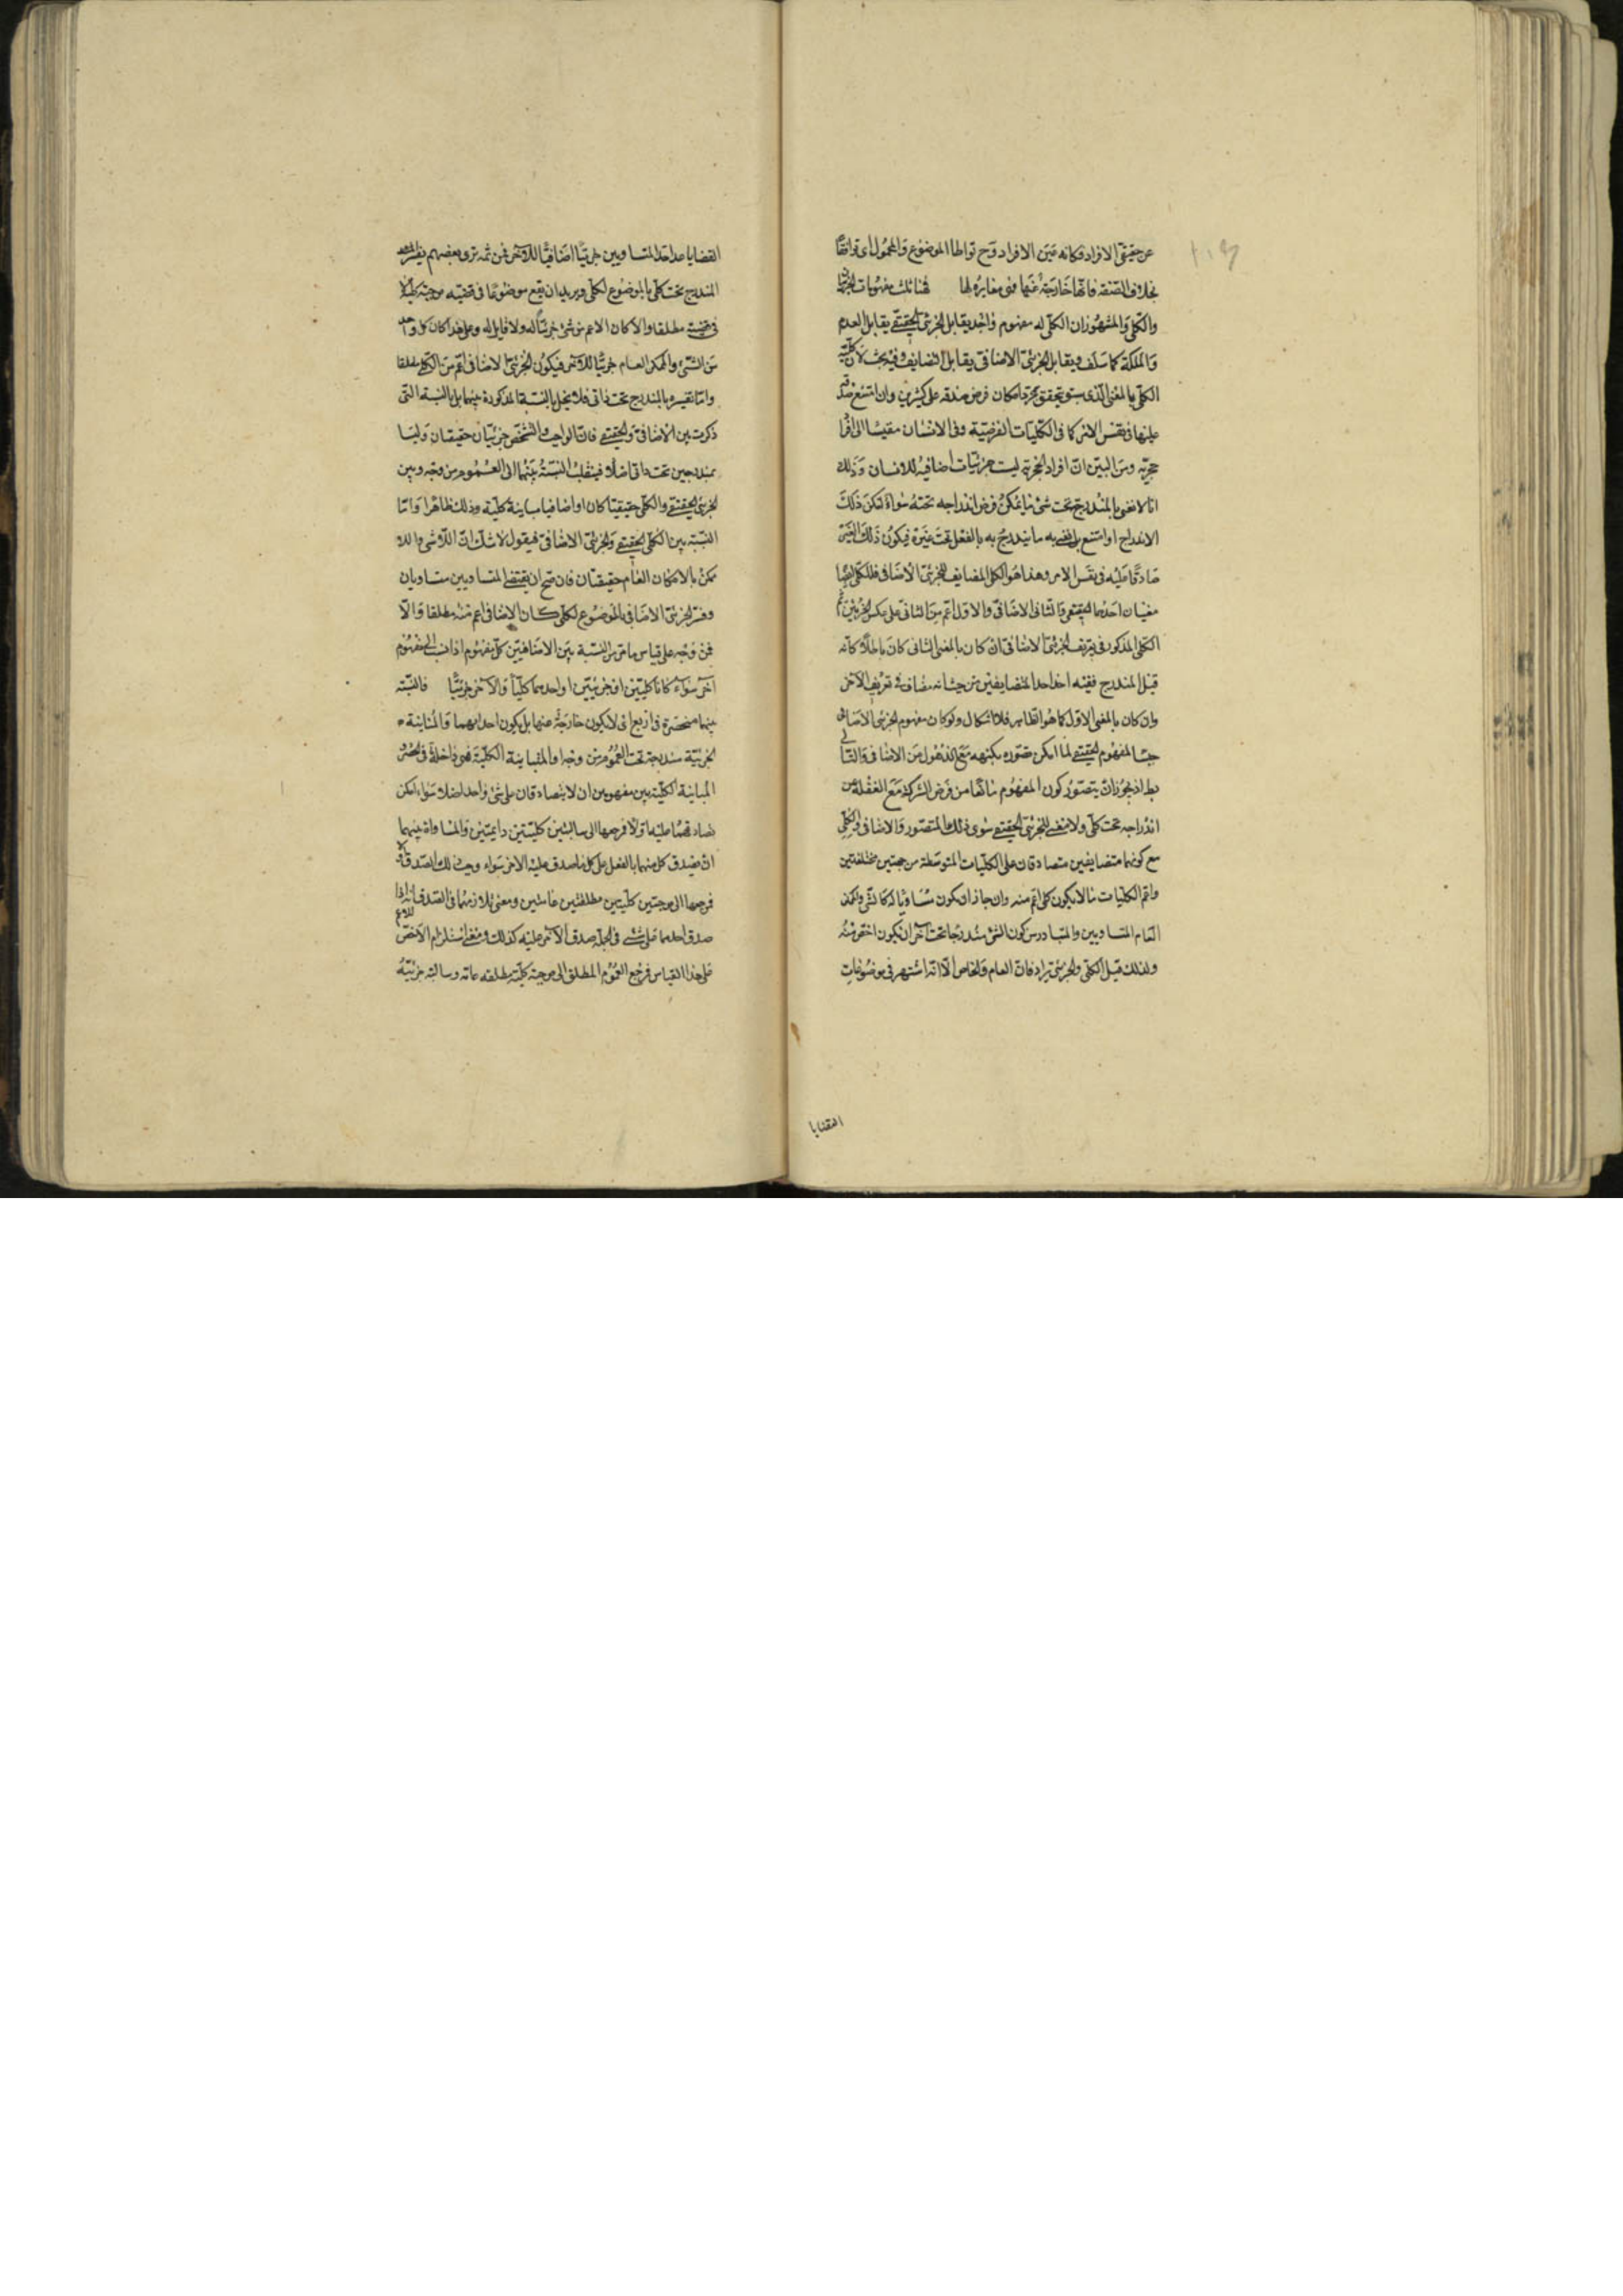 عن حقيقى الافراد فكانه عين الافراد وح تواطا الموضوع والمحمول اى توافقا
بخلاف الصفة فانها خارجة عنها فهى مغايرة لها فهنالك مفهومات الجزئى
والكلى والمشهور ان الكلى له مفهوم واحد يقابل الجزئى الحقيقى يقابل العدم
والملكة كما سلف ويقابل الجزئى الاضافى يقابل التضايف وفيه بحث لان كلية
الكلى بالمعنى الذى سبق يتحقق بمجرد امكان فرض صدقه على كثيرين وان امتنع صدقه
عليها فى نفس الامر كما فى الكليات الفرضية وفى الانسان مقيسا الى افراد
حجرية ومن البين ان افراد الحجرية ليست جزئيات اضافية للانسان وذلك
انا لا نعنى بالمندرج تحت شئ ما يمكن فرض اندراجه تحته سواء امكن ذلك
الاندراج او امتنع بل نعنى به ما يندرج به بالفعل تحت غيره فيكون ذلك الغير
صادقا عليه فى نفس الامر وهذا هو الكلى المضايف للجزئى الاضافى فللكلى ايضا
معنيان احدهما الحقيقى والثانى الاضافى والاول اعم من الثانى على عكس الجزئيين
الكلى المذكور فى تعريف الجزئى الاضافى ان كان بالمعنى الثانى كان باطلا لانه
قبل المندرج ففيه اخذ احد المتضايفين من حيث انه مضاف فى تعريف الاخر
وان كان بالمعنى الاول كما هو الظاهر فلا اشكال ولو كان مفهوم الجزئى الاضافى
جنسا لمفهوم الحقيقى لما امكن تصوره بكنهه مع الذهول عن الاضافى والتالى
بط اذ يجوز ان يتصور كون المفهوم مانعا من فرض الشركة مع الغفلة عن
اندراجه تحت كلى ولا معنى للجزئى الحقيقى سوى ذلك المتصور والاضافى والكلى
مع كونهما متضايفين متصادقان على الكليات المتوسطة من جهتين مختلفتين
واعم الكليات ما لا يكون كلى اعم منه وان جاز ان يكون مساويا له كالشئ والممكن
العام المتساويين والمتبادر من كون الشئ مندرجا تحت آخر ان يكون اخص منه
ولذلك قيل الكلى والجزئى يرادفان العام والخاص الا انه اشتهر فى موضوعات
القضايا
القضايا عد احد المتساويين جزئيا اضافيا للاخر فمن ثمه ترى بعضهم يفسر
المندرج تحت كلى بالموضوع لكلى ويريد ان يقع موضوعا فى قضيه موجبة كلية لا
فى قضية مطلقا والا كان الاعم من شئ جزئيا له ولا قايل له وعلى هذا كان كل واحد
من الشئ والممكن العام جزئيا للاخر فيكون الجزئى الاضافى اعم من الكلى مطلقا
واما تفسيره بالمندرج تحت ذاتى فلا يخل بالنسبة المذكورة بينهما بل بالنسبة التى
ذكرت بين الاضافى والحقيقى فان الواجب والتشخص جزئيان حقيقيان وليسا
بمندرجين تحت ذاتى اصلا فينقلب النسبة بينهما الى العموم من وجه وبين
الجزئى الحقيقى والكلى حقيقيا كان او اضافيا مباينة كلية وذلك ظاهر واما
النسبة بين الكلى الحقيقى والجزئى الاضافى فيقول لا شك ان اللاشى واللا
ممكن بالامكان العام حقيقيان فان صح ان نقيضى المتساويين متساويان
وفسر الجزئى الاضافى بالموضوع لكلى كان الاضافى اعم منه مطلقا والا
فمن وجه على قياس ما مر من النسبة بين الاضافيين كل مفهوم اذا نسب الى مفهوم
آخر سواء كانا كليين او جزئيين او احدهما كليا والآخر جزئيا فالنسبة
بينهما منحصرة فى اربع اى لا يكون خارجة عنها بل يكون احداهما والمباينة
الجزئية مندرجة تحت العموم من وجه او المباينة الكلية فهى داخلة فى الحصر
المباينة الكلية بين مفهومين ان لا يتصادقان على شئ واحد اصلا سواء امكن
تصادقهما عليه او لا فمرجعها الى سالبتين كليتين دايمتين والمساواة بينهما
ان يصدق كل منهما بالفعل على كل ما صدق عليه الاخر سواء وجب ذلك الصدق او لا
فمرجعها الى موجبتين كليتين مطلقتين عامتين ومعنى تلازمهما فى الصدق انه اذا
صدق احدهما على شئ فى الجملة صدق الآخر عليه كذلك ومعنى استلزام الاخص للاعم
على هذا القياس فمرجع العموم المطلق الى موجبة كلية مطلقه عامة وسالبة جزئية